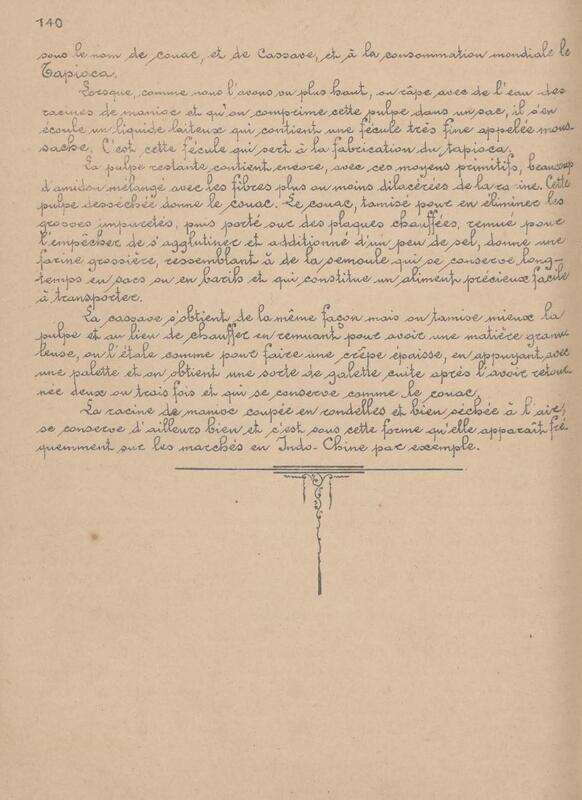 140
sous le nom de couac, et de Cassave, et à la consommation mondiale le
Tapioca.
Lorsque, comme nous l'avons vu plus haut, on râpe avec de l'eau des
racines de manioc et qu'on comprime cette pulpe dans un sac, il s'en
écoule un liquide laiteux qui contient une fécule très fine appelée mous-
sache. C'est cette fécule qui sert à la fabrication du tapioca.
La pulpe restante contient encore, avec ces moyens primitifs, beaucoup
d'amidon mélangé avec les fibres plus ou moins dilacérées de la racine. Cette
pulpe desséchée donne le couac. Le couac, tamisé pour en éliminer les
grosses impuretés, puis porté sur des plaques chauffées, remué pour
l'empêcher de s'agglutiner et additionné d'un peu de sel, donne une
farine grossière, ressemblant à de la semoule qui se conserve long-
temps en sacs ou en barils et qui constitue un aliment précieux facile
à transporter.
La cassave s'obtient de la même façon mais on tamise mieux la
pulpe et au lieu de chauffer en remuant pour avoir une matière granu
leuse, on l'étale comme pour faire une crêpe épaisse, en appuyant avec
une palette et on obtient une sorte de galette cuite après l'avoir retour
née deux ou trois fois et qui se conserve comme le couac.
La racine de manioc coupée en rondelles et bien séchée à l'air,
se conserve d'ailleurs bien et c'est sous cette forme qu'elle apparaît fré
quemment sur les marchés en Indo-Chine par exemple.